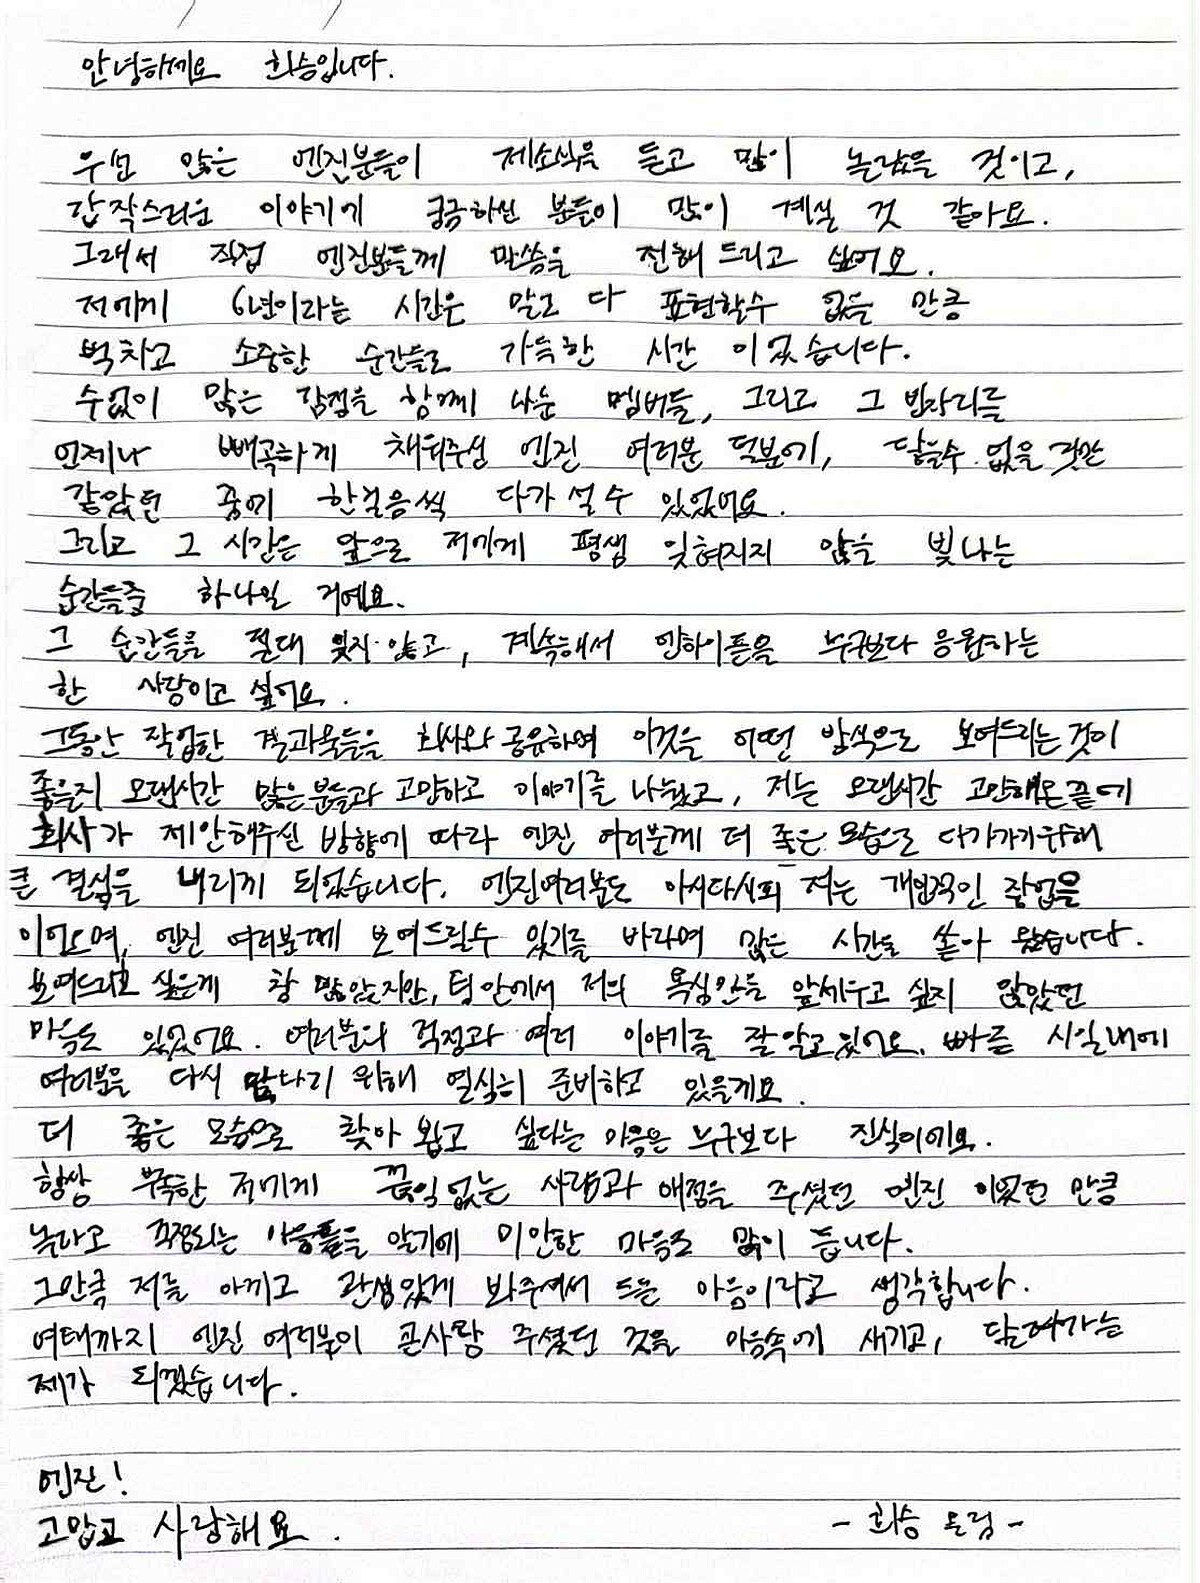 안녕하세요 희승입니다.
우선 많은 엔진분들이 제소식을 듣고 많이 놀랐을 것이고,
갑작스러운 이야기에 궁금하신 분들이 많이 계실 것 같아요.
그래서 직접 엔진분들께 말씀을 전해 드리고 싶어요.
저에게 6년이라는 시간은 말로 다 표현할수 없을 만큼
벅차고 소중한 순간들로 가득한 시간 이었습니다.
수없이 많은 감정을 함께 나눈 멤버들, 그리고 그 빈자리를
언제나 빼곡하게 채워주신 엔진 여러분 덕분에, 닿을수 없을 것만
같았던 꿈에 한걸음씩 다가 설 수 있었어요.
그리고 그 시간은 앞으로 저에게 평생 잊혀지지 않을 빛나는
순간들중 하나일 거예요.
그 순간들을 절대 잊지 않고, 계속해서 엔하이픈을 누구보다 응원하는
한 사람이고 싶어요.
그동안 작업한 결과물들을 회사와 공유하며 이것을 어떤 방식으로 보여드리는 것이
좋을지 오랜시간 많은분들과 고민하고 이야기를 나눴고, 저는 오랜시간 고민해온 끝에
회사가 제안해주신 방향에 따라 엔진 여러분께 더 좋은 모습으로 다가가기위해
큰 결심을 내리게 되었습니다. 엔진여러분도 아시다시피 저는 개인적인 작업을
이어오며, 엔진 여러분께 보여드릴수 있기를 바라며 많은 시간을 쏟아 왔습니다.
보여드리고 싶은게 참 많았지만, 팀 안에서 저의 욕심만을 앞세우고 싶지 않았던
마음도 있었어요. 여러분의 걱정과 여러 이야기를 잘 알고 있어요. 빠른 시일내에
여러분을 다시 만나기 위해 열심히 준비하고 있을게요.
더 좋은 모습으로 찾아 뵙고 싶다는 마음은 누구보다 진심이에요.
항상 부족한 저에게 끊임없는 사랑과 애정을 주셨던 엔진 이었던 만큼
놀라고 걱정되는 마음들을 알기에 미안한 마음도 많이 듭니다.
그만큼 저를 아끼고 관심있게 봐주셔서 드는 마음이라고 생각합니다.
여태까지 엔진 여러분이 큰사랑 주셨던 것을 마음속에 새기고, 달려가는
제가 되겠습니다.
엔진!
고맙고 사랑해요.
- 희승 올림 -